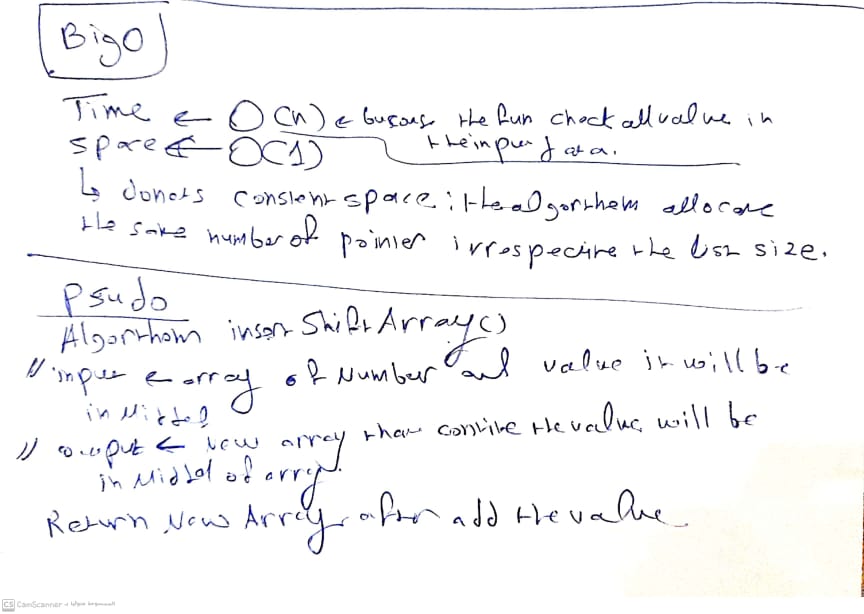 BigO
Time ← O(n) ← because the fun check all value in
the input data.
space ← O(1)
↳ donets constent space: the algorthem allocate
the same number of pointer irrespective the list size.
Psudo
Algorthem insert Shift Array()
// input ← array of Number and value it will be
in Middel
// output ← New array that the value will be
in Middel of array.
Return New Array after add the value
CS CamScanner